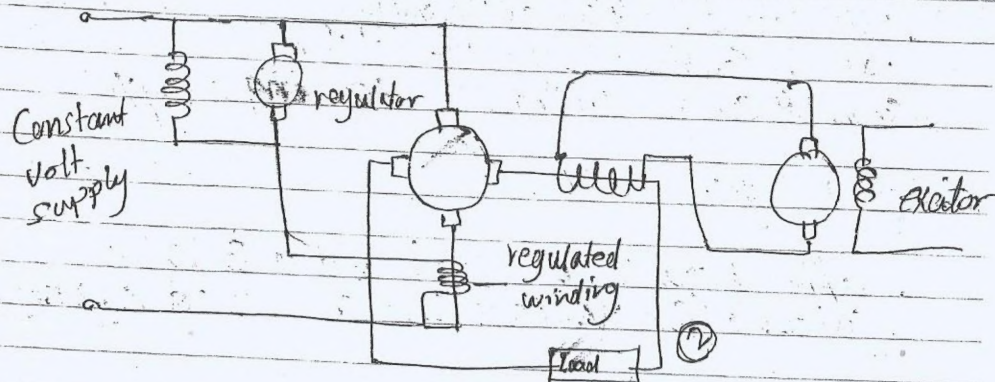 Constant
volt.
supply
regulator
regulated
winding
excitor
load
2